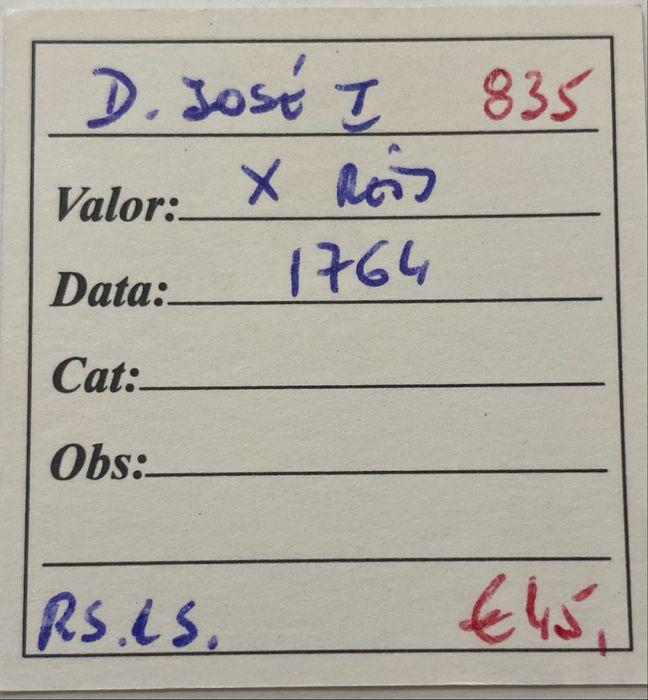 D. José I 835
Valor: X Réis
Data: 1764
Cat:
Obs:
RS.LS. €45,